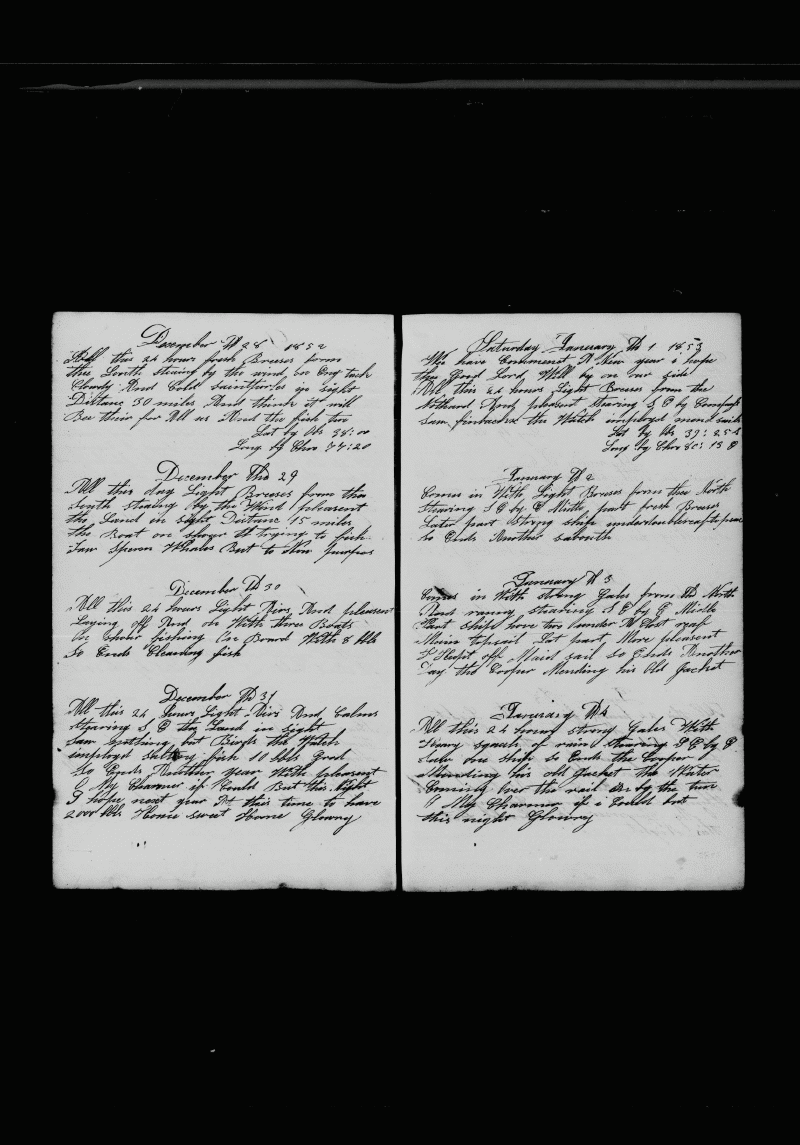 December th 28 1852
All this 24 hours fresh Breses from
the South stearing by the wind on Eny tack
Cloudy And Cold in sight
Distance 30 miles And think it will
Bee their for All us And the fish two
Lat by Obs 38:00
Long by Chro 74:20
December Th 29
All this day Light Breeses from the
South stearing by the Wind pleasent
the Land in sight Distance 15 miles
the Boat on shore trying to fish
Saw Sperm Whales But to Now purpos
December Th 30
All this 24 hours Light Airs And pleasent
Laying off And on With three Boats
On Shore fishing On Board With 8 bbls
So Ends Cleaning fish
December Th 31
All this 24 hours Light Airs And Calms
stearing S E the Land in sight
Saw nothing but Birds the Watch
imployd Salting fish 10 bbls Good
So Ends Another year With pleasent
O My Charmer if Could But this Night
I hope next year At this time to have
2000 bbls Home sweet Home Glowry
Saturday Janurary th 1 1853
We have Commenct A New year i hope
the Good Lord Will by on our side
All this 24 hours Light Breses from the
Nothard And pleasent stearing S E by Compass
Saw finbacks the Watch imployd mend sails
Lat by Obs 39:25 S
Long by Chro 80:13
Janurary th 2
Comes in With Light Breses from the North
Stearing S E by E Midle part fresh Breses
Later part strong ship under double
So Ends Another saboth
Janurary th 3
Comes in With strong Gales from th North
And rainy stearing S E by E Midle
Part ships hove two under A Clost reaf
Main topsail Lat part More pleasent
Keept off Maid sail So Ends Another
Day the Cooper Mending his Old Jacket
Januarary th 4
All this 24 hours strong Gales With
Heavy squals of rain stearing S E by E
saw one ship So Ends the Cooper
Mending his old Jacket the Water
Coming over the rail by the tun
O My Charmer if i Could but
this night Glowry